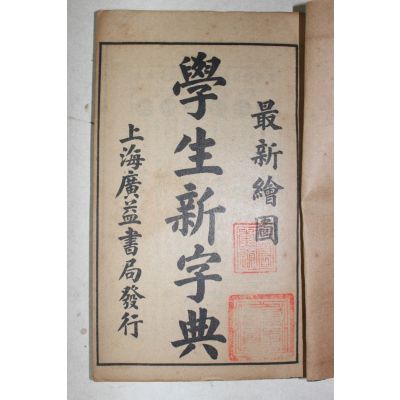 最新繪圖
學生新字典
上海廣益書局發行